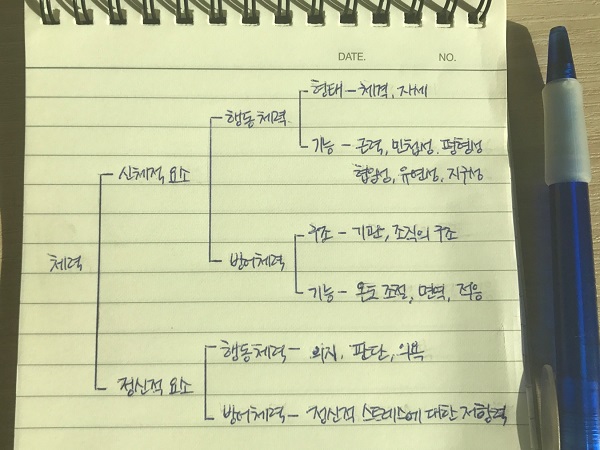 DATE. NO.
형태 - 체격, 자세
행동체력
기능 - 근력, 민첩성, 평형성
신체적 요소
협응성, 유연성, 지구성
구조 - 기관, 조직의 구조
체력
방어체력
기능 - 온도 조절, 면역, 적응
행동체력 - 의지, 판단, 의욕
정신적 요소
방어체력 - 정신적 스트레스에 대한 저항력